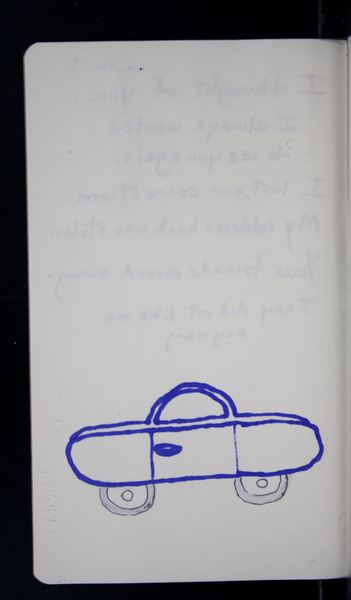 I thought of you...
I always wanted
to see you again.
I lost our connections.
My address book was stolen.
Your friends moved away.
They did not like me
anyway